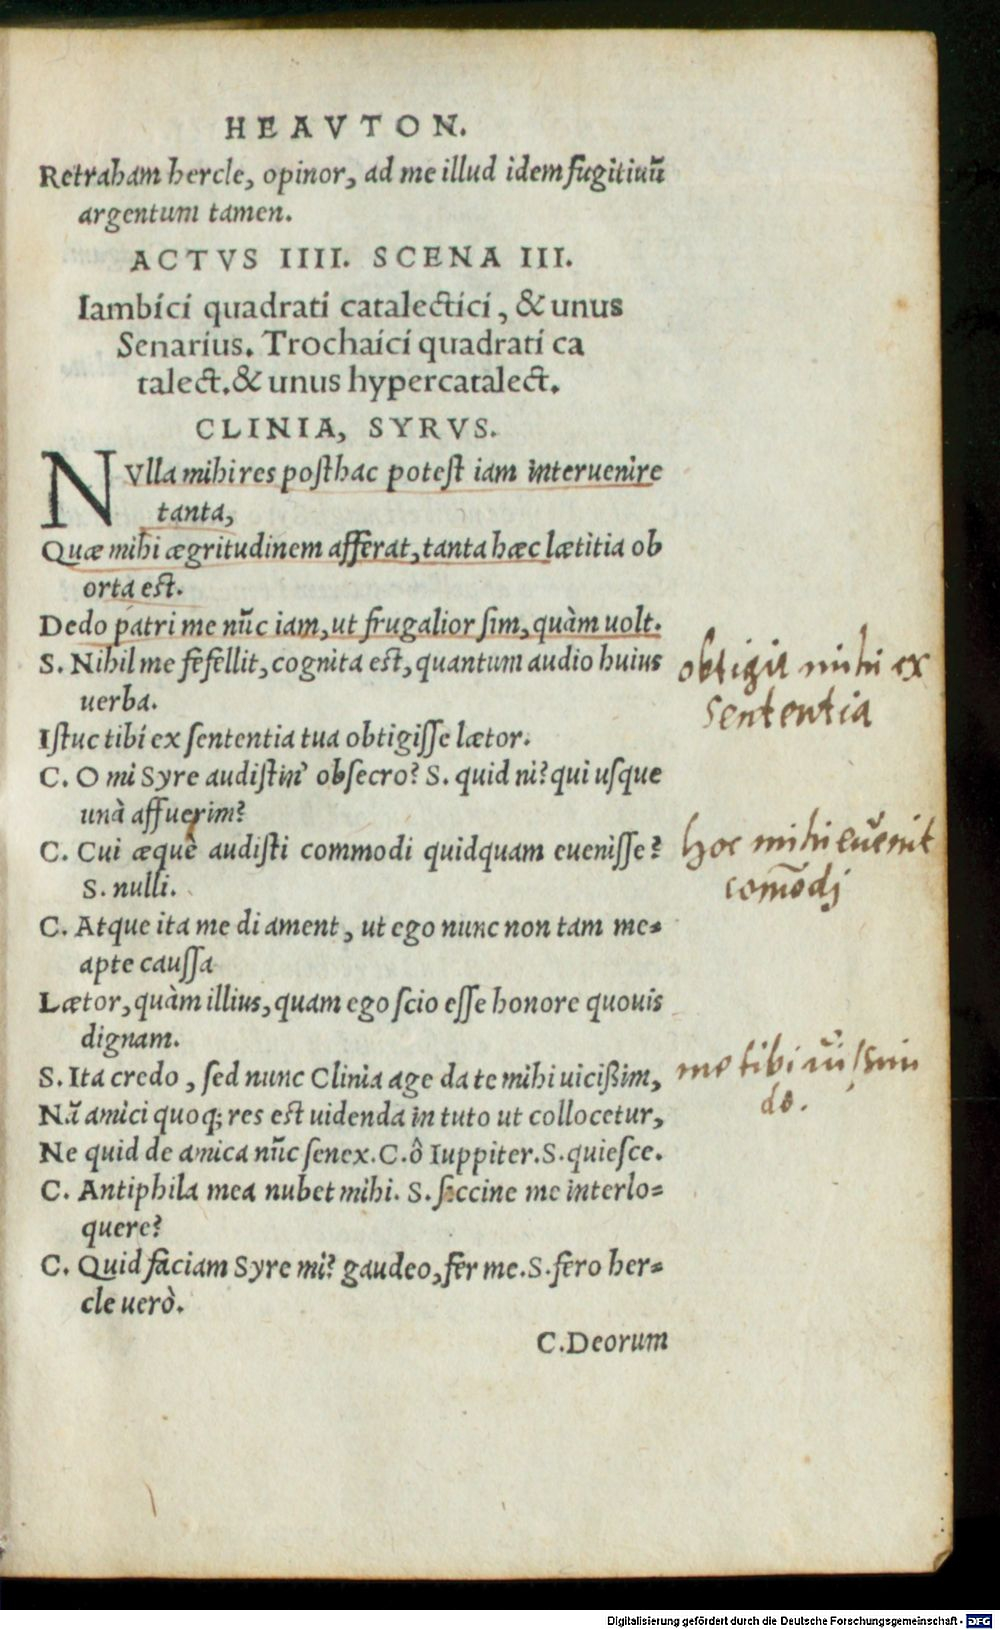 HEAVTON.
Retraham hercle, opinor, ad me illud idem fugitiuũ
argentum tamen.
ACTVS IIII. SCENA III.
Iambici quadrati catalectici, & unus
Senarius. Trochaici quadrati ca
talect. & unus hypercatalect.
CLINIA, SYRVS.
NVlla mihi res posthac potest iam interuenire
tanta,
Quæ mihi ægritudinem afferat, tanta hæc lætitia ob
orta est.
Dedo patri me nũc iam, ut frugalior sim, quàm uolt.
S. Nihil me fefellit, cognita est, quantum audio huius
uerba.
obtigit mihi ex
sententia
Istuc tibi ex sententia tua obtigisse lætor.
C. O mi Syre audistin' obsecro? S. quid ni? qui usque
unà affuerim?
C. Cui æquè audisti commodi quidquam euenisse?
S. nulli.
hoc mihi euẽnit
com̃odj
C. Atque ita me di ament, ut ego nunc non tam me=
apte caussa
Lætor, quàm illius, quam ego scio esse honore quouis
dignam.
S. Ita credo, sed nunc Clinia age da te mihi uicißim,
me tibi
do.
Nã amici quoq; res est uidenda in tuto ut collocetur,
Ne quid de amica nũc senex. C. ô Iuppiter. S. quiesce.
C. Antiphila mea nubet mihi. S. siccine me interlo=
quere?
C. Quid faciam Syre mi? gaudeo, fer me. S. fero her=
cle uerò.
C. Deorum
Digitalisierung gefördert durch die Deutsche Forschungsgemeinschaft - DFG